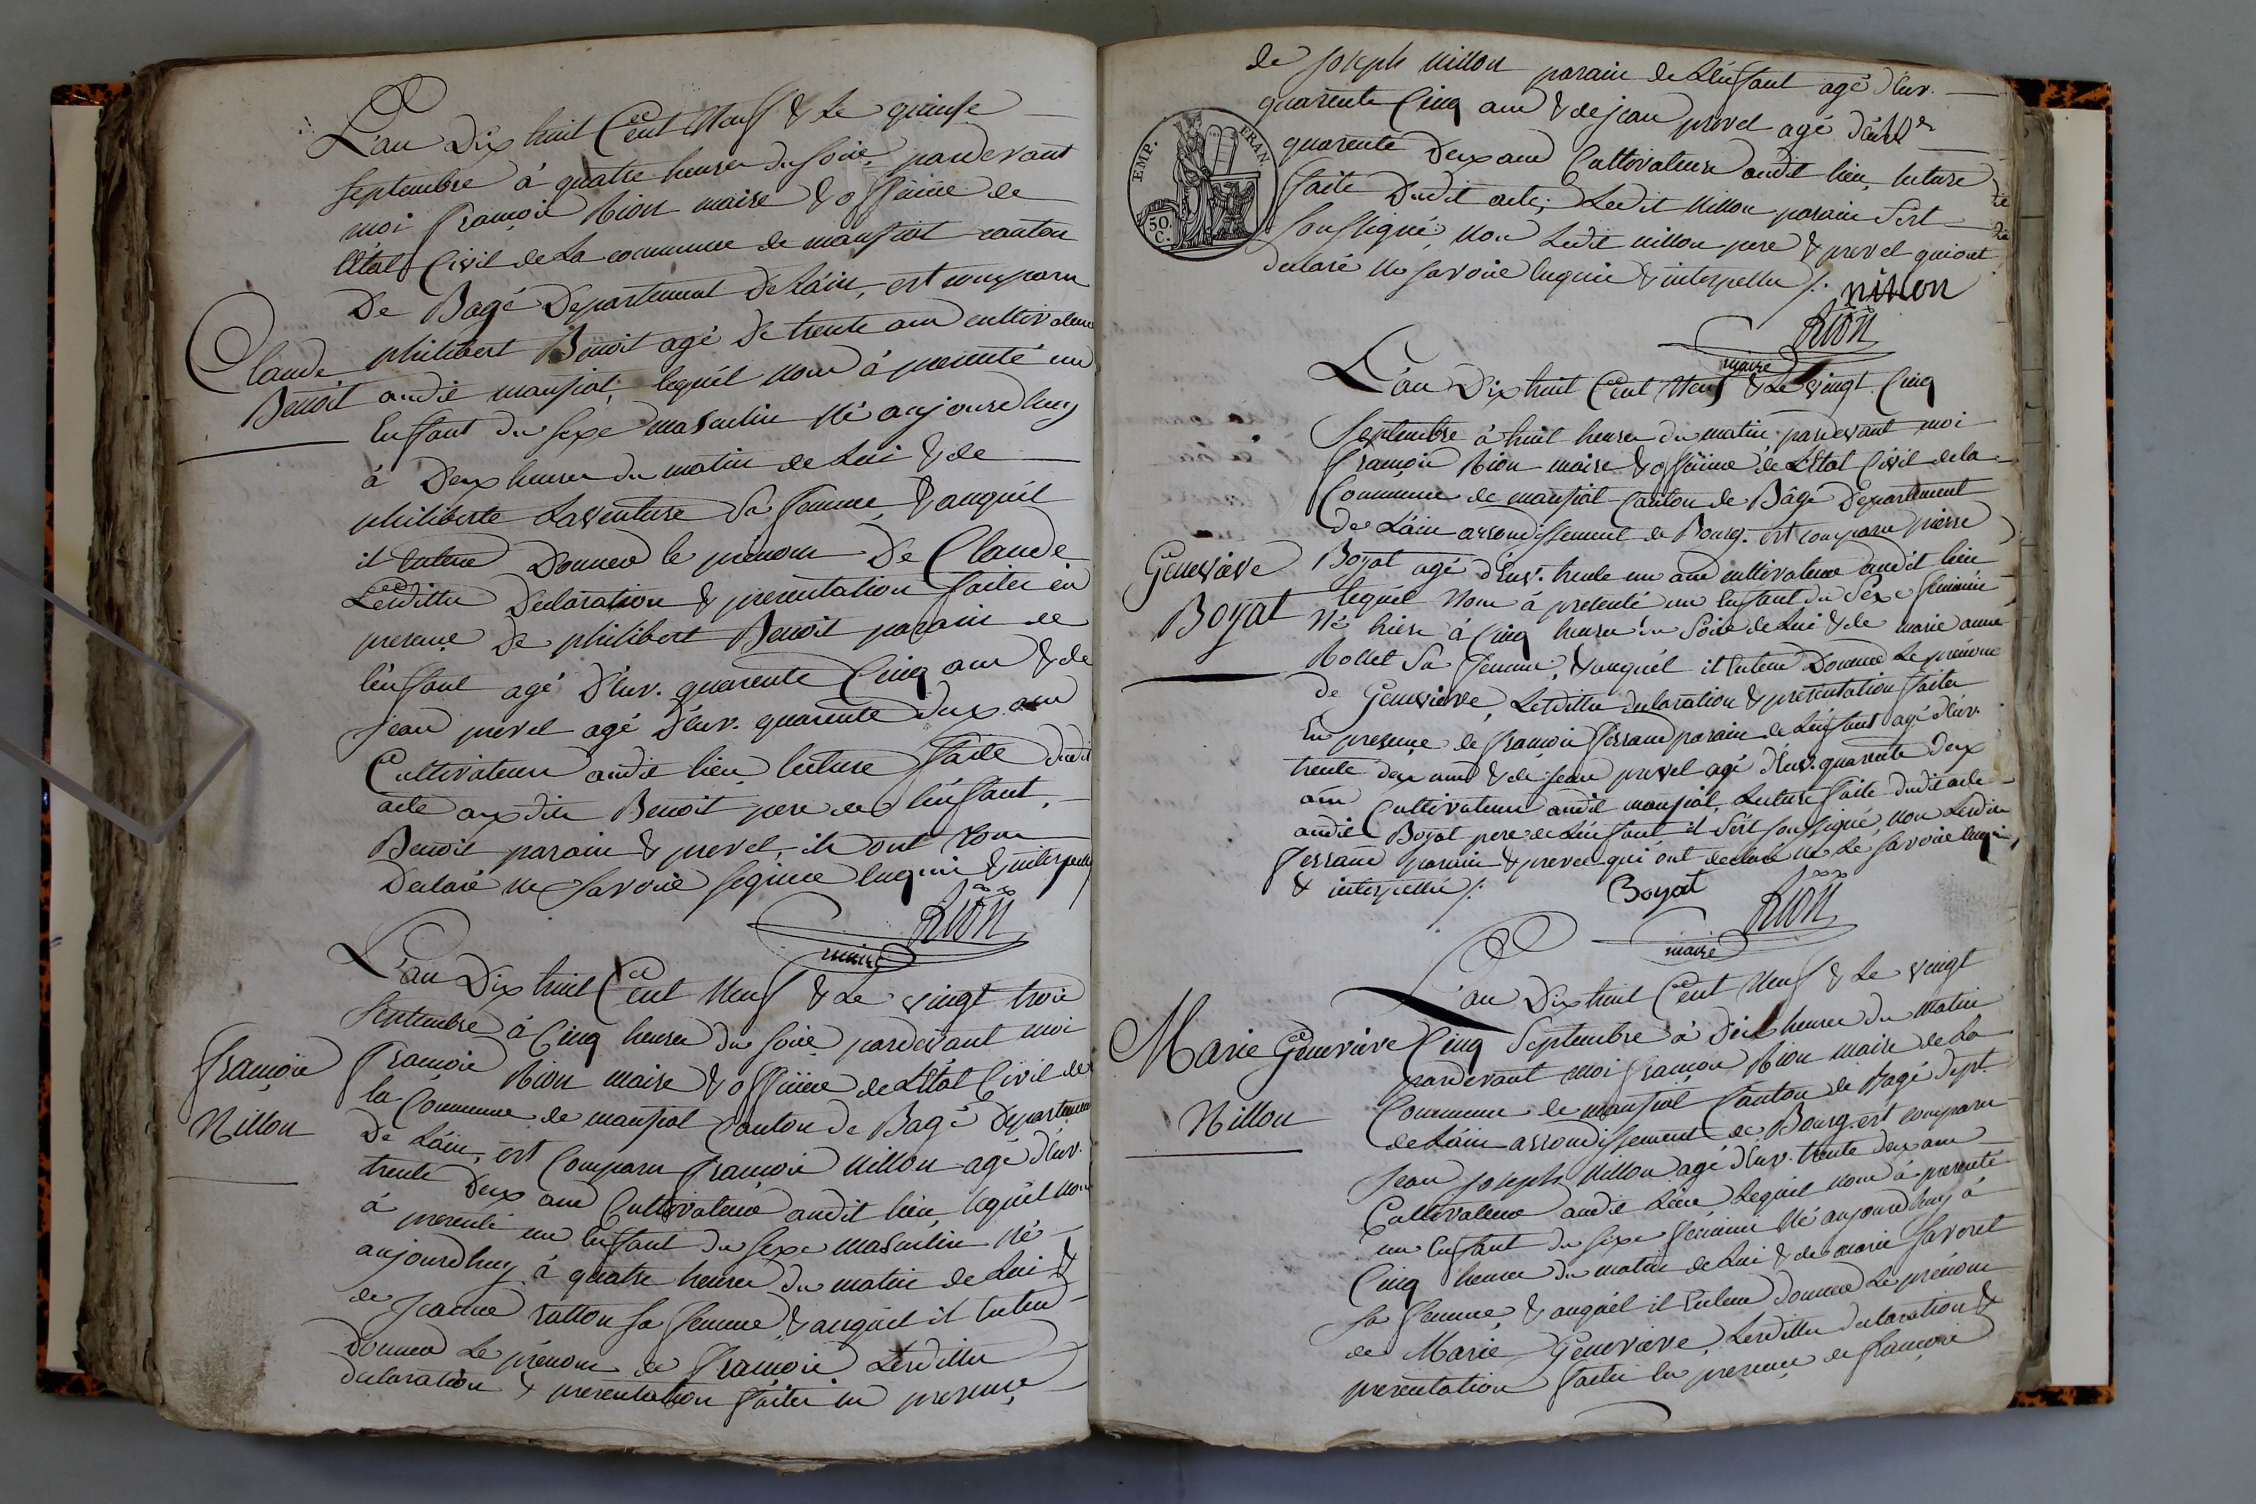 L'an Dix huit Cent Neuf & Le quinse
Septembre à quatre heures du Soire, pardevant
moi François Rion maire & officiie de
l'Etat Civil de La commune de mansiat canton
De Bagé Departement de L'ain, est comparu
philibert Benoit agé De trente ans cultivateur
Claude
Benoit
audit mansiat, lequel nous à presenté un
Enffant du Sexe masculin Né aujourdhuy
à Deux heures du matin de Lui & de
philiberte Laventure Sa ffemme, & auquél
il Entend Donner le prénom De Claude
Lesdittes Declaration & presentation ffaites en
presence De philibert Benoit parain de
l'énffant agé D'Env. quarente Cinq ans & de
Jean prevel agé D'Env. quarente deux ans
Cultivateurs audit lieu lecture ffaite dudit
acte auxdits Benoit pere de l'énffant,
Benoit parain & prevel, ils ont tous
Declaré ne Savoir Signer Enquis & interpellés
Rion
maire
L'an Dix huit Cent Neuf & Le vingt trois
Septembre à Cinq heures du Soire pardevant moi
françois
Nillon
François Rion maire & officiie de L'Etat Civil de
la Commune de mansiat Canton de Bagé Departement
De L'ain, est Comparu François Nillon agé D'Env.
trente Deux ans Cultivateur audit lieu, lequél nous
à presenté un Enffant du Sexe masculin Né
aujourdhuy à quatre heures du matin de Lui &
de Jeanne ratton Sa ffemme, & auquel il Entend
donner Le prénom de François Lesdittes
declaration & presentation ffaites en presence
de Joseph Nillon parain de L'énffant agé d'Env.
quarente Cinq ans & de jean prevel agé d'Env.
quarente Deux ans Cultivateurs audit lieu, lecture
ffaite Dudit acte, Ledit Nillon parain S'est
Soussigné, Non Ledit nillon pere & prevel qui ont
declaré Ne Savoir Enquis & interpellés /.
EMP. FRAN.
50. C.
nillon
Rion
maire
L'an Dix huit Cent Neuf & Le vingt Cinq
Septembre à huit heures du matin pardevant moi
François Rion maire & officiie de L'Etat Civil de la
Commune de mansiat Canton de Bâgé Departement
de L'ain arrondissement de Bourg. est comparu pierre
Geneviève
Boyat
Boyat agé d'Env. trente un ans cultivateur audit lieu
lequél Nous à presenté un Enffant du Sexe ffeminin
Né hier à Cinq heures du Soire de Lui & de marie anne
Rollet Sa ffemme, & auquél il Entend Donner Le prénom
de Genevieve, Lesdittes declaration & presentation ffaites
En presence de François fferrand parain de L'énffant agé d'Env.
trente deux ans & de jean prevel agé d'Env. quarente deux
ans Cultivateurs audit mansiat, Lecture ffaite dudit acte
audit Boyat pere de L'énffant il S'est soussigné, non Lesdits
fferrand parain & prevel qui ont declaré ne Le Savoir Enquis
& interpellés /.
Boyat
Rion
maire
L'an Dix huit Cent Neuf & Le vingt
Marie Geneviève
Nillon
Cinq Septembre à Dix heures du Matin
pardevant moi François Rion maire de La
Commune de mansiat Canton de Bagé Dept.
de L'ain arrondissement de Bourg. est comparu
Jean joseph Nillon agé D'Env. trente deux ans
Cultivateur audit Lieu Lequél nous à presenté
un Enffant du Sexe ffeminin Né aujourdhuy à
Cinq heures du matin de Lui & de marie Favoret
Sa ffemme, & auquél il Entend donner Le prénom
de Marie Geneviève, Lesdittes declaration &
presentation ffaites En presence de François